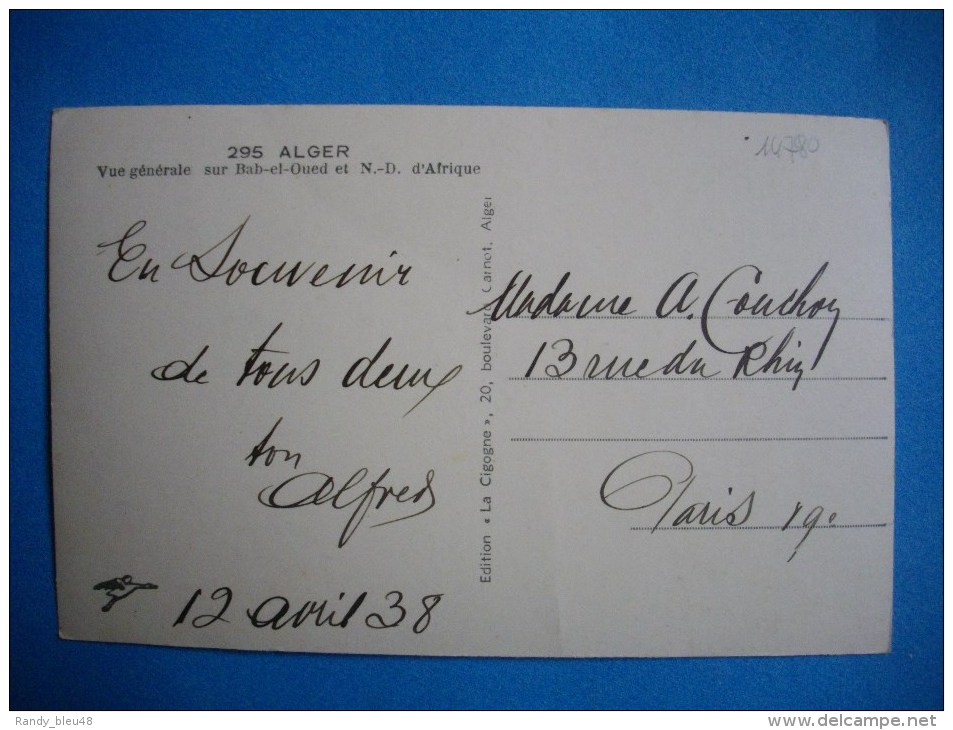 295 ALGER
Vue générale sur Bab-el-Oued et N.-D. d'Afrique
14780
En Souvenir
de tous deux
ton
Alfred
12 avril 38
Edition « La Cigogne », 20, boulevard Carnot, Alger
Madame A. Couchoy
13 rue du Rhin
Paris 19e
Randy_bleu48
www.delcampe.net